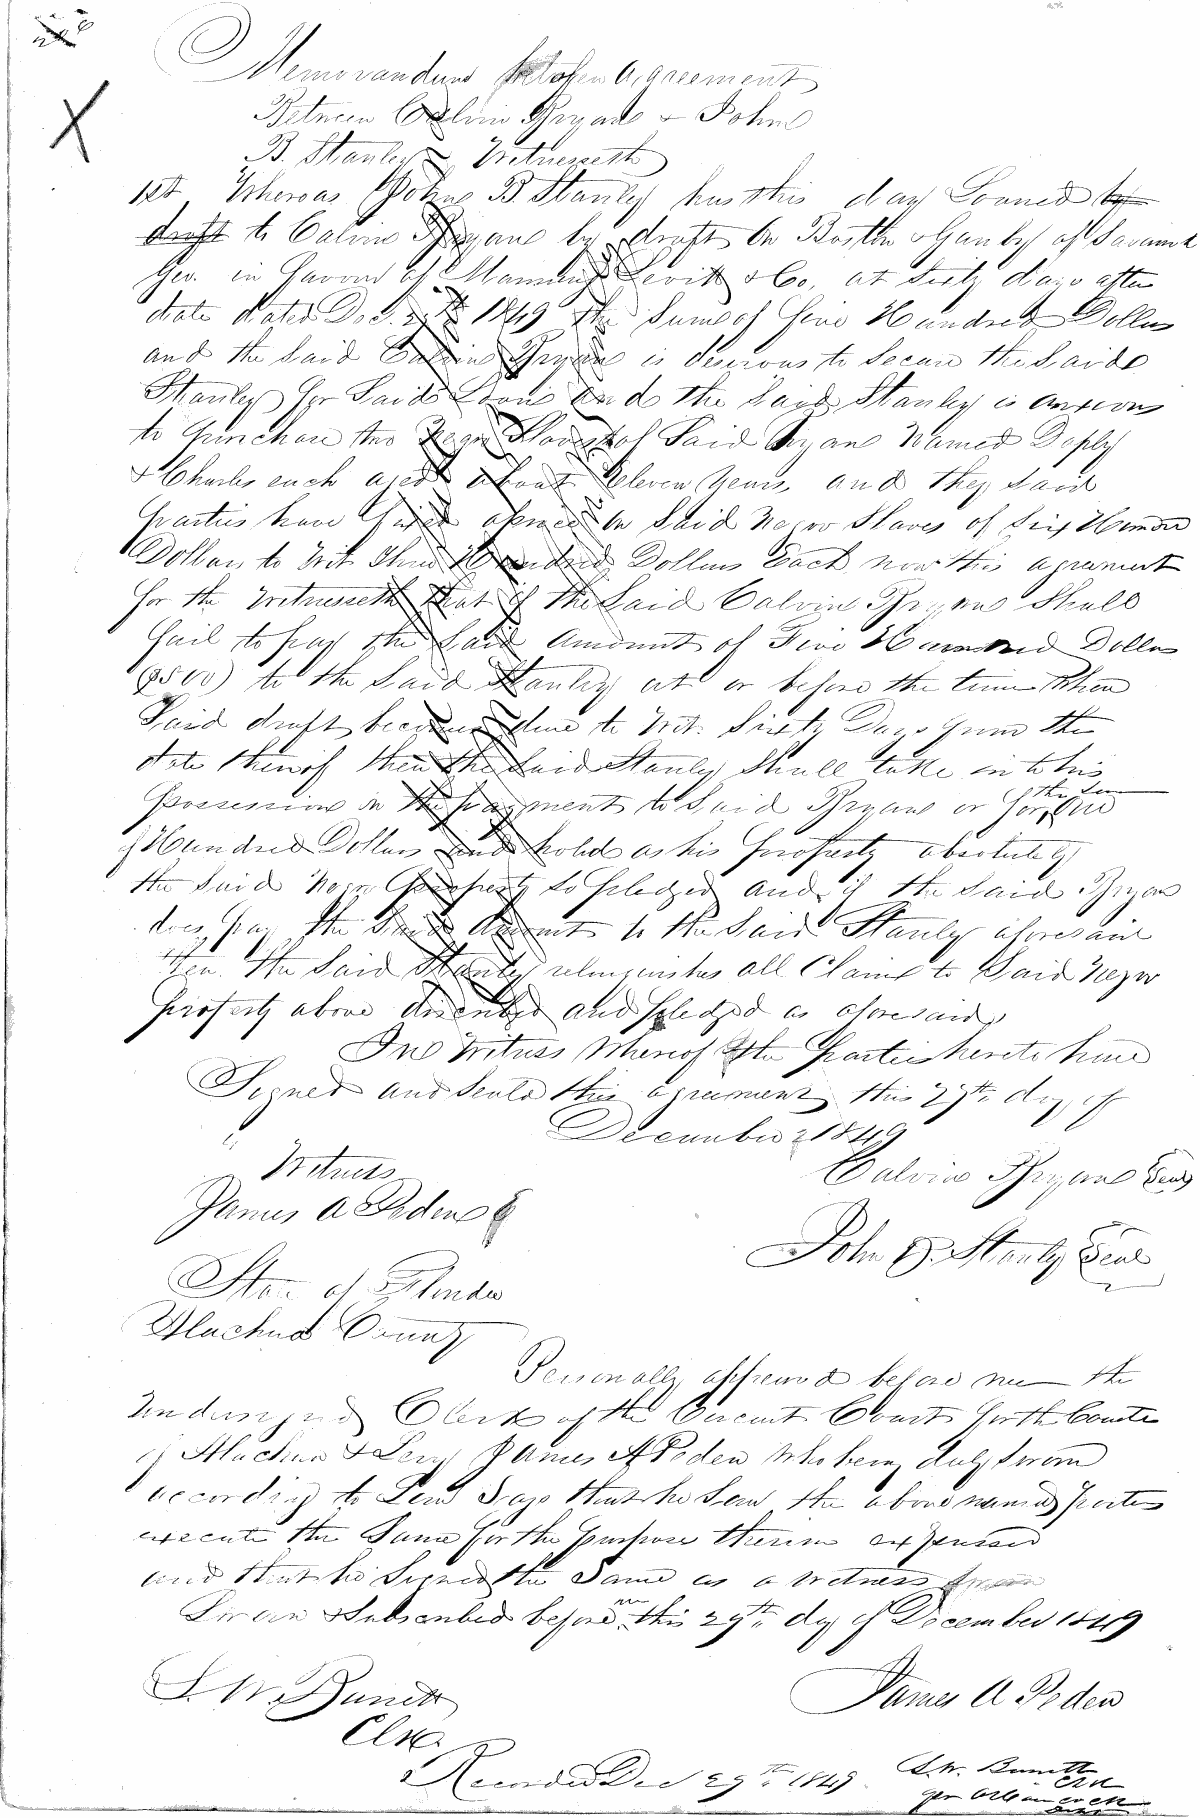 Memorandum of an Agreement
Between Calvin Bryan & John
B. Stanley Witnesseth
1st Whereas John B. Stanley has this day Loaned by
draft to Calvin Bryan by draft On Boston & Ganby of Savannah
Geo. in favour of Manning Levitt & Co. at Sixty days after
date dated Dec. 1849 the Sum of five Hundred Dollars
and the Said Calvin Bryan is desirous to Secure the Said
Stanley for Said Loan and the Said Stanley is anxious
to purchase two Negro Slaves of Said Bryan Named
& Charles each aged about Eleven Years and they Said
parties have fixed a price on Said Negro Slaves of Six Hundred
Dollars to Wit Three Hundred Dollars Each now this agreement
for the Witnesseth that if the Said Calvin Bryan Shall
fail to pay the Said Amount of Five Hundred Dollars
($500) to the Said Stanley at or before the time When
Said draft becomes due to Wit. Sixty Days from the
date thereof then the Said Stanley Shall take in to his
possession in the payment to Said Bryan or for the Sum One
of Hundred Dollars and hold as his property absolutely
the Said Negro property So pledged and if the Said Bryan
does pay the Said Amount to the Said Stanley aforesaid
then the Said Stanley relinquishes all Claim to Said Negro
property above described and pledged as aforesaid,
In Witness Whereof the parties hereto have
Signed and Seald this agreement this 29th day of
December 1849
Witness
Calvin Bryan Seal
James A Peden
John B. Stanley Seal
State of Florida
Alachua County
Personally appeared before me the
Undersigned Clerk of the Circuit Court for the Counties
of Alachua & Levy James A Peden Who being duly Sworn
according to Law Says that he Saw the above named parties
execute the Same for the purpose therein expressed
and that he Signed the Same as a witness
Sworn & Subscribed before me this 29th day of December 1849
S. W. Burnett
James A Peden
Clk.
Recorded Dec 29th 1849
S. W. Burnett
Clk